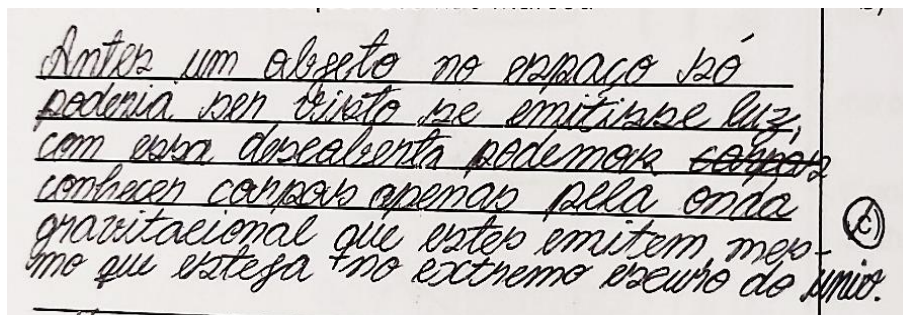 Antes um objeto no espaço só
poderia ser visto se emitisse luz,
com essa descoberta podemos corpos
conhecer corpos apenas pela onda
gravitacional que estes emitem, mes-
mo que esteja no extremo escuro do univ.
C